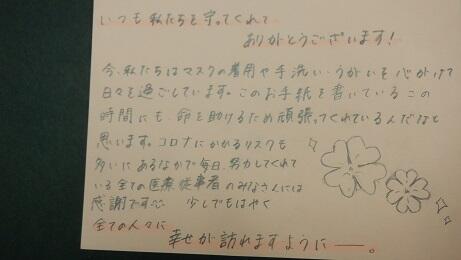 いつも私たちを守ってくれて
ありがとうございます!
今、私たちはマスクの着用や手洗い・うがいを心がけて
日々を過ごしています。このお手紙を書いているこの
時間にも、命を助けるため頑張ってくれているんだなと
思います。コロナにかかるリスクも
多いにあるなかで毎日、努力してくれて
いる全ての医療従事者のみなさんには
感謝です 少しでもはやく
全ての人々に
幸せが訪れますように──。